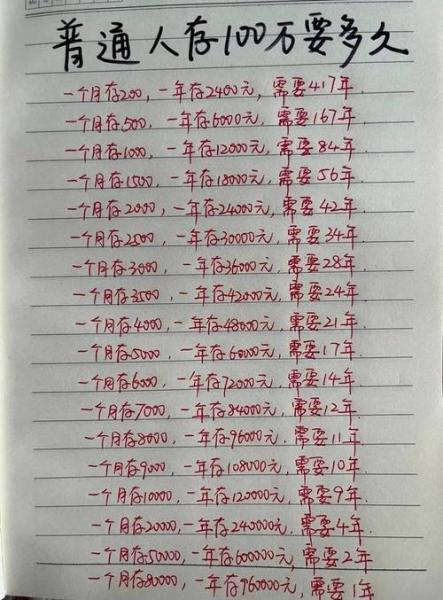 普通人存100万要多久
一个月存200，一年存2400元，需要417年.
一个月存500，一年存6000元，需要167年.
一个月存1000，一年存12000元，需要84年.
一个月存1500，一年存18000元，需要56年.
一个月存2000，一年存24000元，需要42年.
一个月存2500，一年存30000元，需要34年.
一个月存3000，一年存36000元，需要28年.
一个月存3500，一年存42000元，需要24年.
一个月存4000，一年存48000元，需要21年.
一个月存5000，一年存60000元，需要17年.
一个月存6000，一年存72000元，需要14年.
一个月存7000，一年存84000元，需要12年.
一个月存8000，一年存96000元，需要11年.
一个月存9000，一年存108000元，需要10年.
一个月存10000，一年存120000元，需要9年.
一个月存20000，一年存240000元，需要4年.
一个月存50000，一年存600000元，需要2年.
一个月存80000，一年存960000元，需要1年